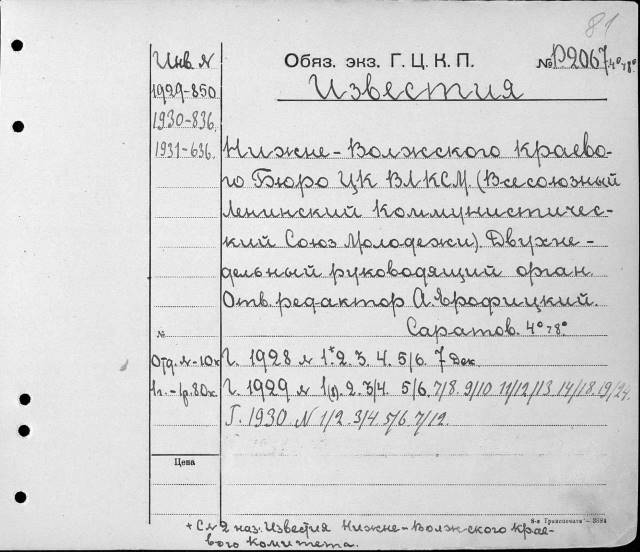 81
Инв. N
Обяз. экз. Г. Ц. К. П.
№ Р2067 4° 78°
Известия
1929-850
1930-836
1931-636.
Нижне-Волжского краево-
го Бюро ЦК ВЛКСМ. (Всесоюзный
Ленинский Коммунистичес-
кий Союз Молодежи). Двухне-
дельный руководящий орган.
Отв. редактор А. Ярофицкий.
Саратов. 4° 78°
№
Отд. № - 10к
Г. 1928 № 1+ 2. 3. 4. 5/6. 7 Дек.
1 г. - 1р. 80к
Г. 1929 № 1(8). 2. 3/4. 5/6. 7/8. 9/10 11/12/13 14/18. 19/24.
Г. 1930 N 1/2. 3/4. 5/6. 7/12.
Цена
8-я Транспечать — 3894
+ С № 2 наз. Известия Нижне-Волжского Крае-
вого Комитета.